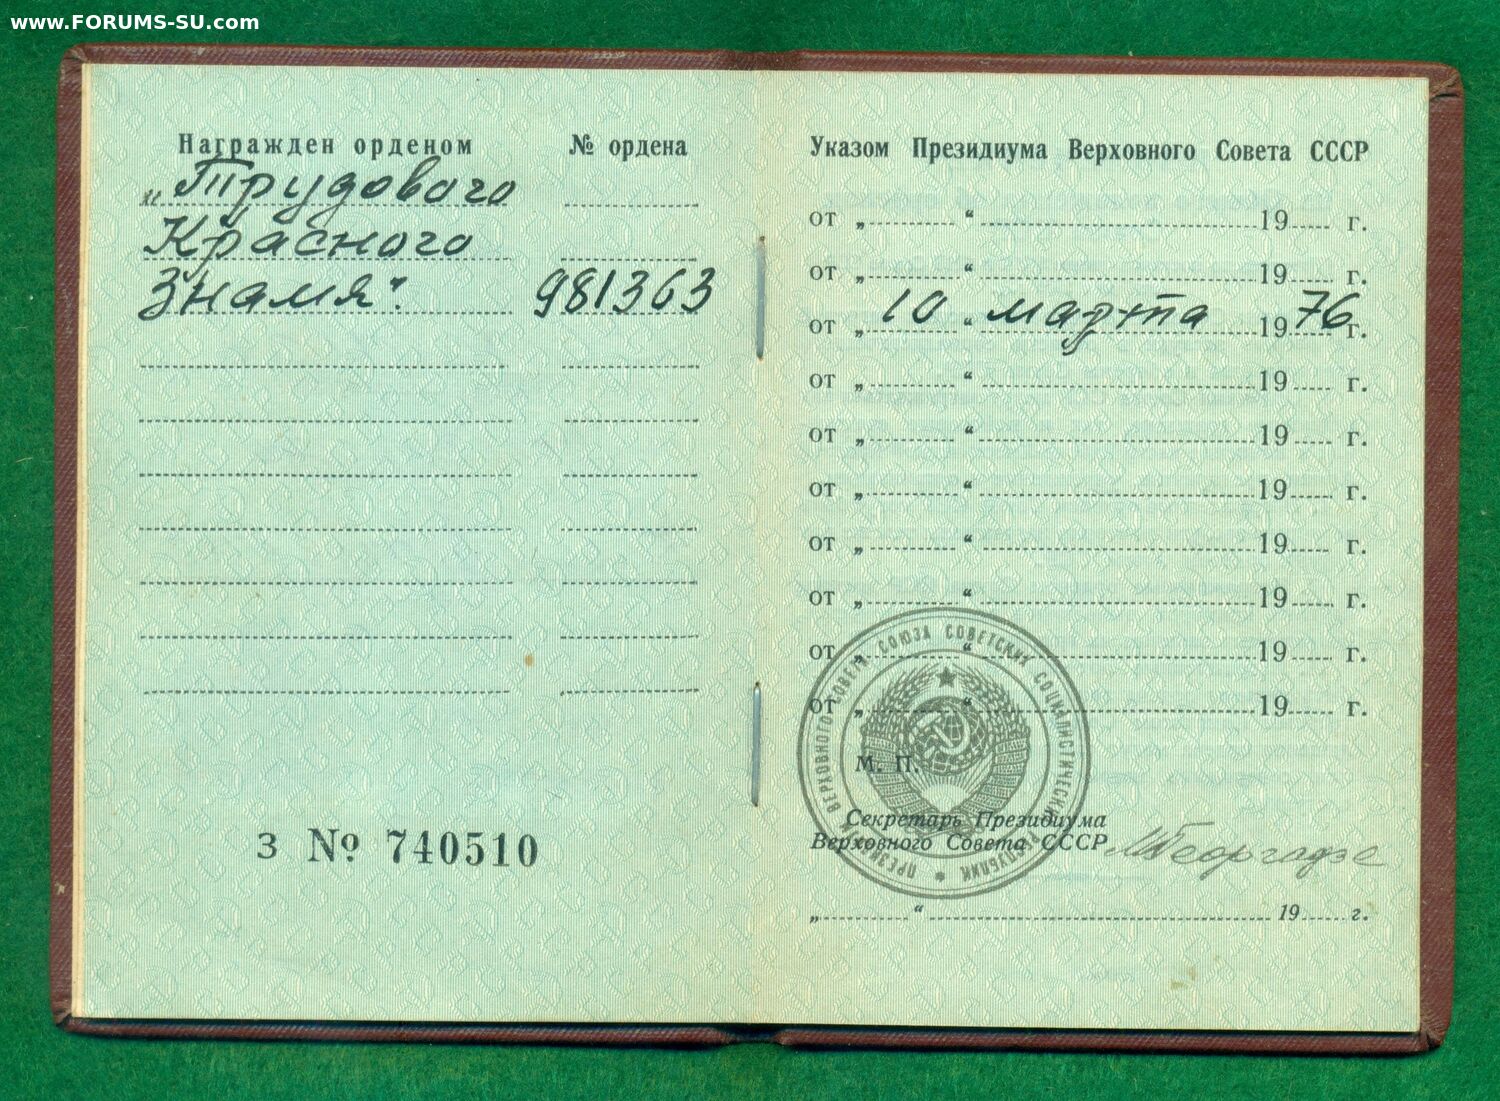 www.FORUMS-SU.com
Награжден орденом № ордена
„Трудового
Красного
Знамя". 981363
З № 740510
Указом Президиума Верховного Совета СССР
от „ “ 19 г.
от „ “ 19 г.
от „ 10 “ марта 1976 г.
от „ “ 19 г.
от „ “ 19 г.
от „ “ 19 г.
от „ “ 19 г.
от „ “ 19 г.
от „ “ 19 г.
от „ “ 19 г.
М. П.
ПРЕЗИДИУМ ВЕРХОВНОГО СОВЕТА СОЮЗА СОВЕТСКИХ СОЦИАЛИСТИЧЕСКИХ РЕСПУБЛИК
Секретарь Президиума
Верховного Совета СССР МГеоргадзе
„ “ 19 г.